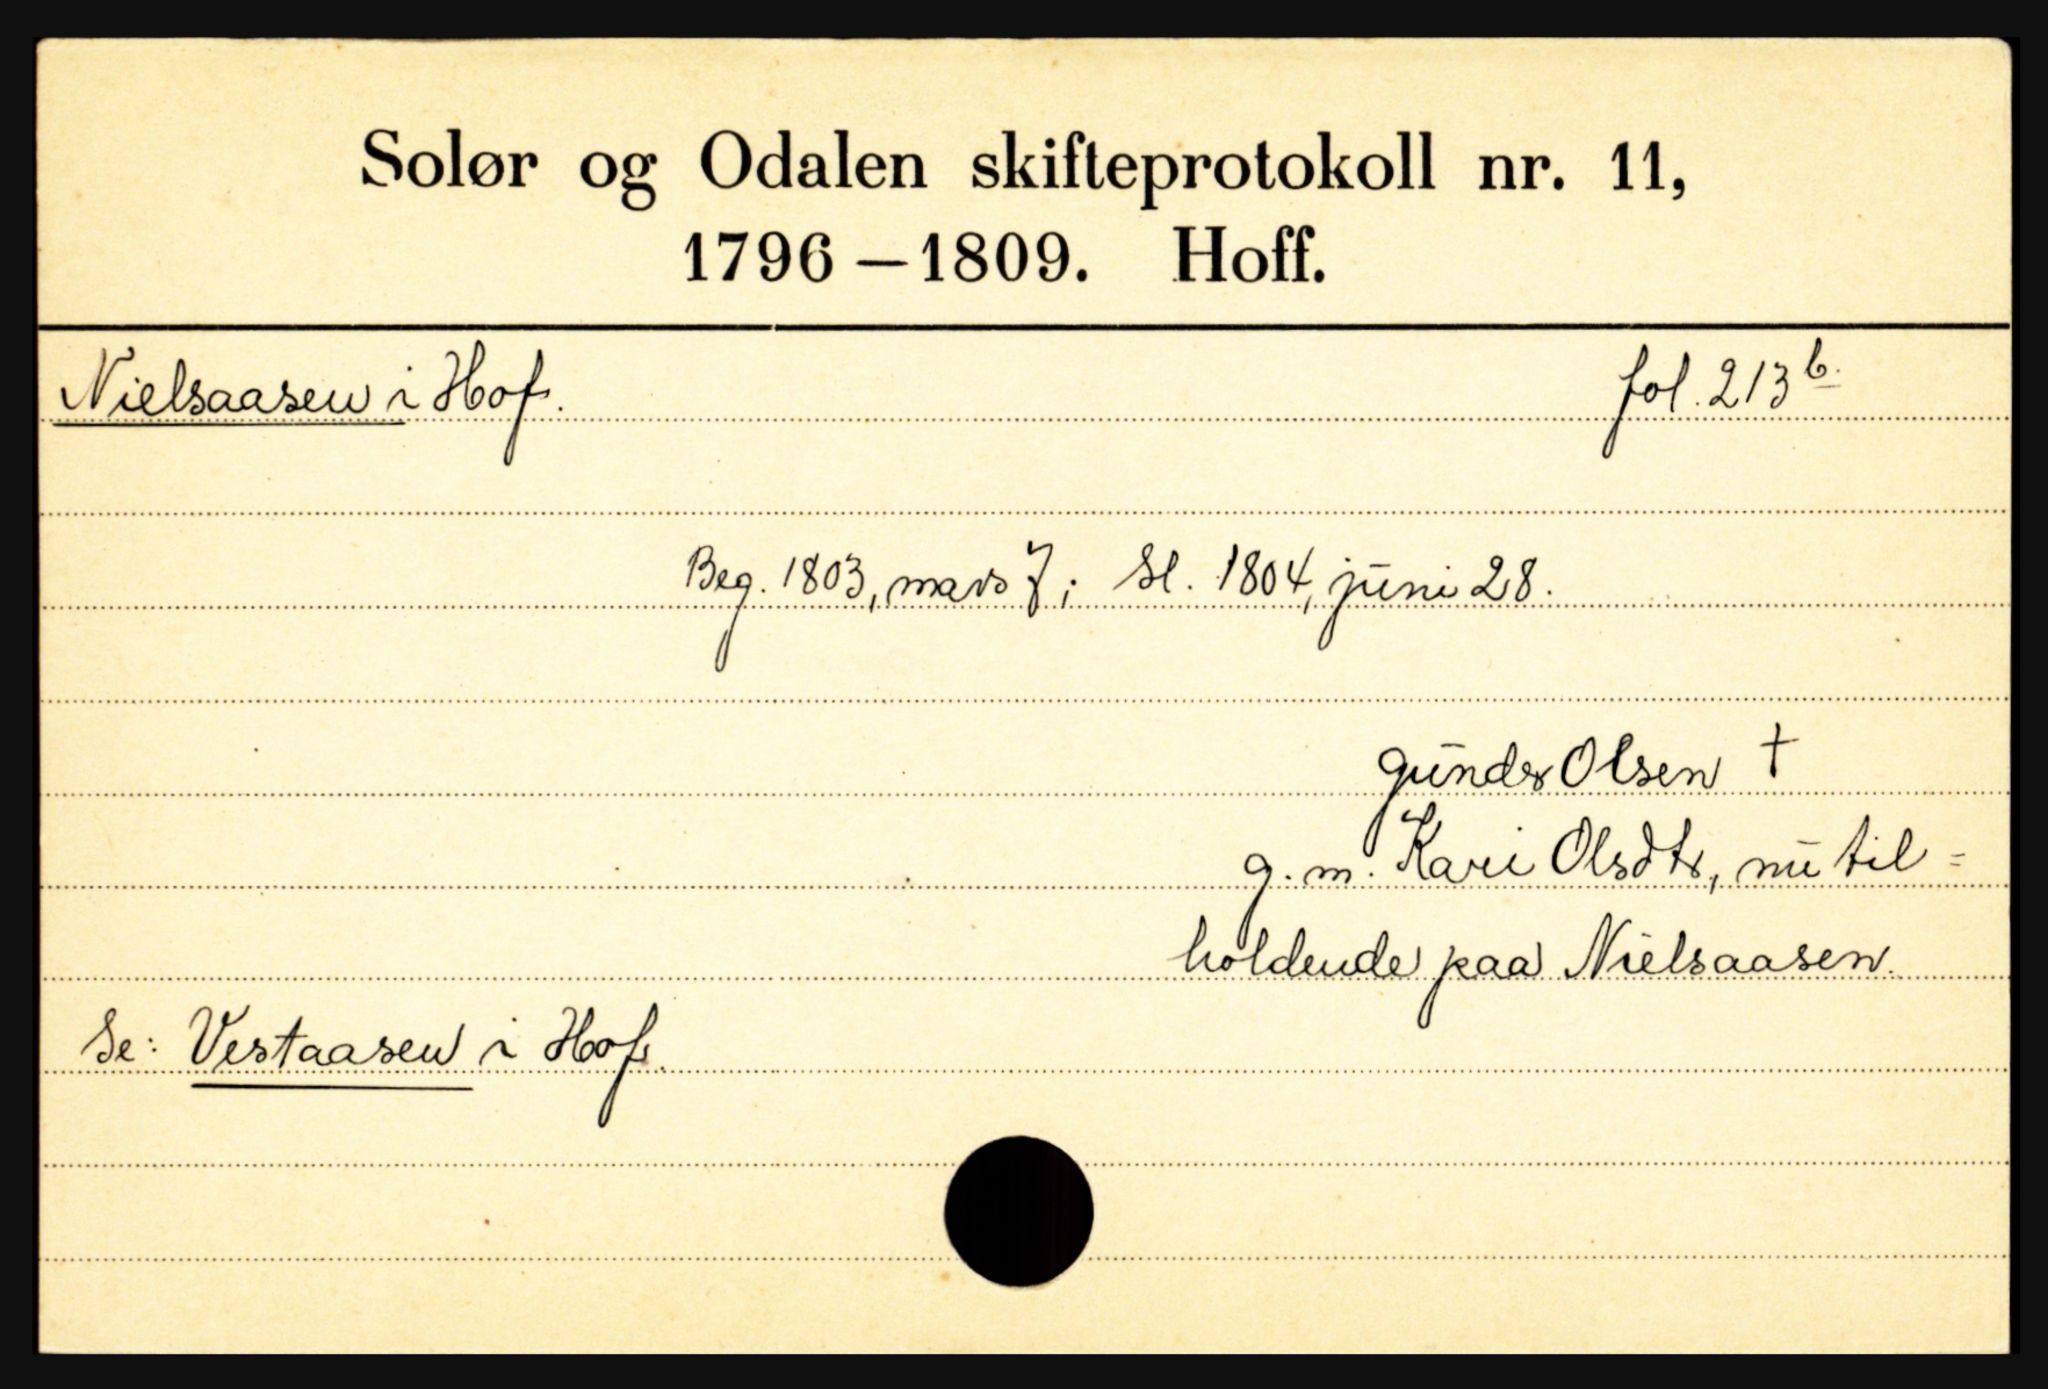 Solør og Odalen skifteprotokoll nr. 11,
1796 – 1809. Hoff.
Nielsaasen i Hof. fol. 213 b.
Beg. 1803, mars 7; Sl. 1804, juni 28.
Gunder Olsen †
g. m. Kari Olsdtr, nu til=
holdende paa Nielsaasen.
Se: Vestaasen i Hof.